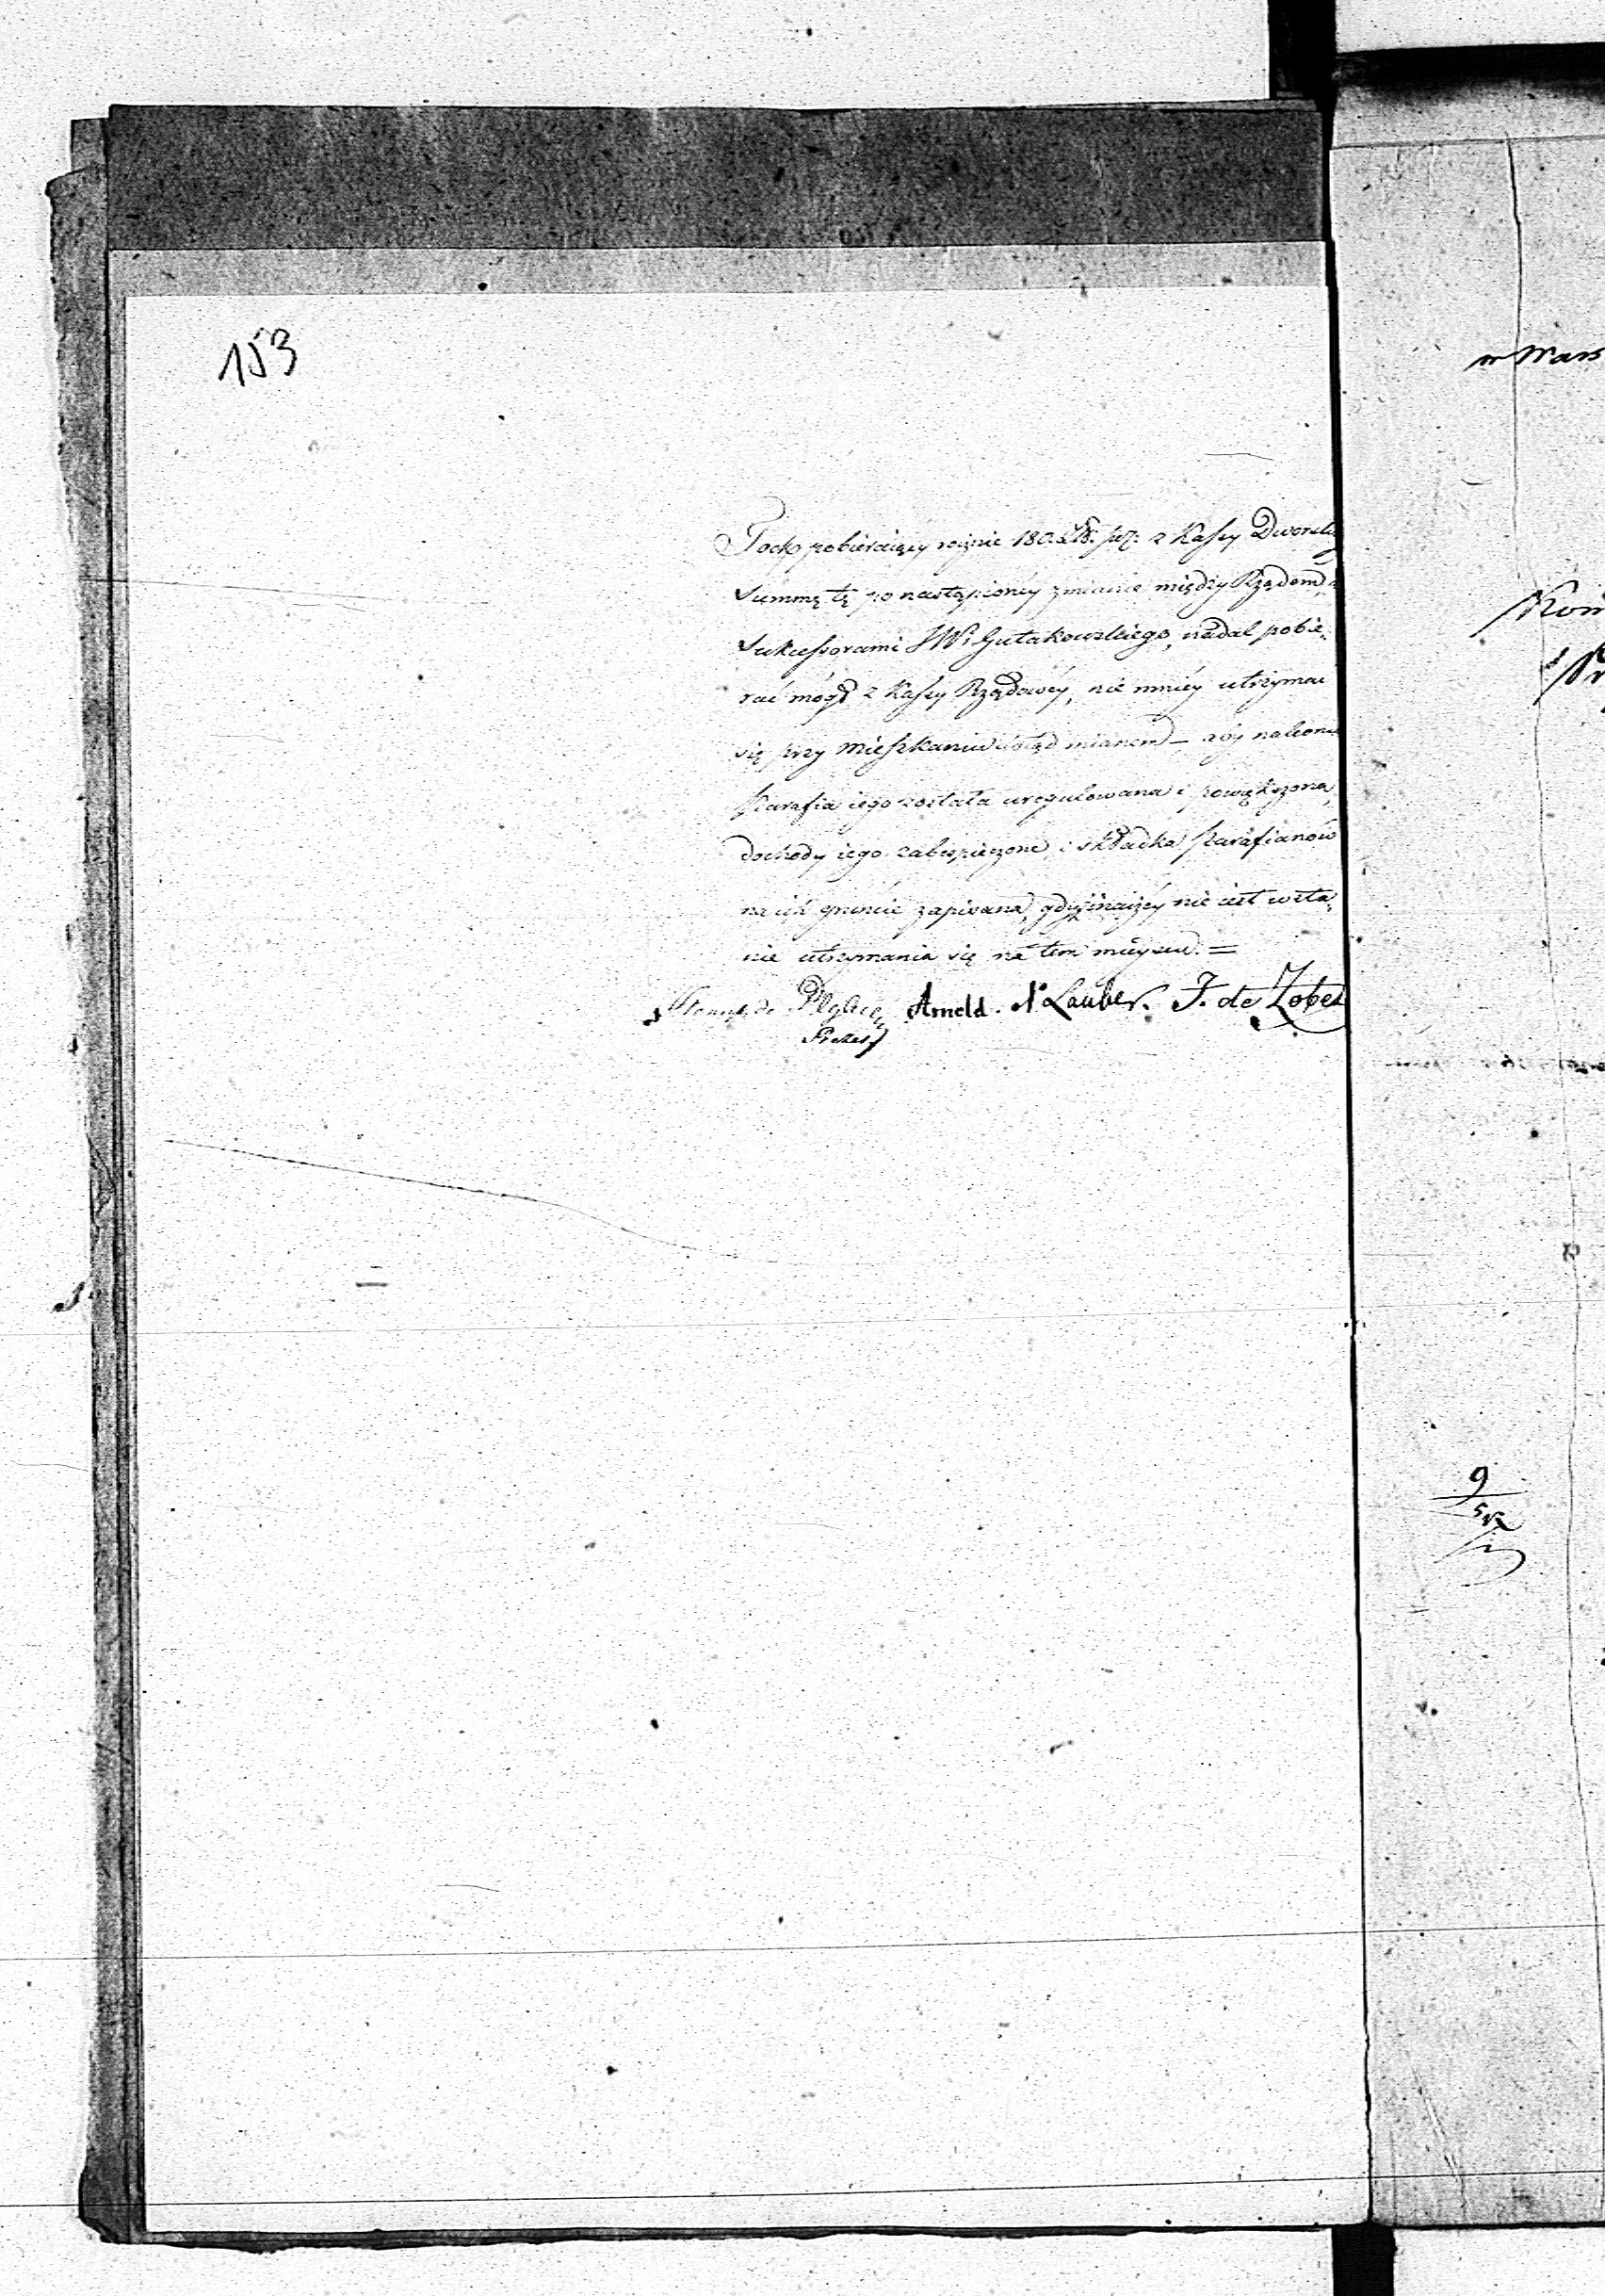 153
Tock pobieraiący rocznie 180. Złł. prz: z Kassy Dworskiey
Summę tę po nastąpioney zmianie między Rządem, a
Sukcessorami JW. Gutakowskiego, nadal pobie-
rać mógł z Kassy Rządowéy, nie mniéy utrzymać
się przy Mieszkaniu dotąd mianem — aby nakoniec
Parafia iego została uregulowana i powiększona,
dochody iego zabespieczone, i składka Parafianów
na ich gruncie zapisana, gdyż inaczéy nie iest w sta-
nie utrzymania się na tem mieyscu. =
de Arnold. Lauber. J. de Zobel
Prezes
w Wars
9